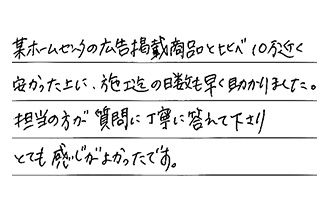 某ホームセンタの広告掲載商品と比べ10万近く
安かった上に、施工迄の日数も早く助かりました。
担当の方が質問に丁寧に答れて下さり
とても感じがよかったです。